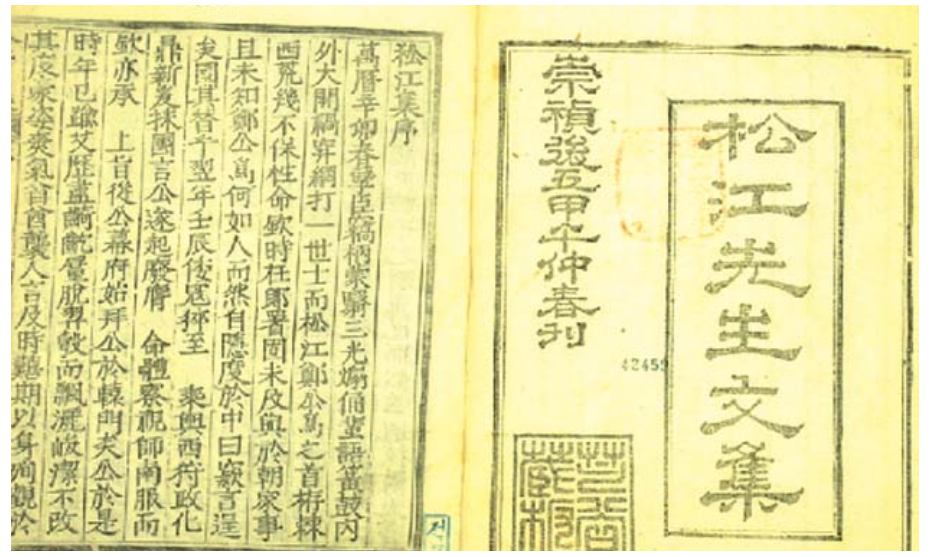 松江先生文集
崇禎後五甲午仲春刊
42459
藏板
松江集序
萬曆辛卯春孽臣竊柄蒙翳三光煽俑蜚語簧鼓內
外大開禍穽網打一世士而松江鄭公爲之首栫棘
西荒幾不保性命欽時在郞署固未及與於朝家事
且未知鄭公爲何如人而然自隱度於中曰竅言逞
矣國其替乎翌年壬辰倭寇猝至 乘輿西狩政化
鼎新爰採國言公遂起廢膺 命體察視師南服而
欽亦承 上旨從公幕府始拜公於轅門矣公於是
時年已踰艾歷盡齮齕屢脫羿彀而飄灑峻潔不改
其度爽氣酋酋襲人言及時艱期以身殉觀於